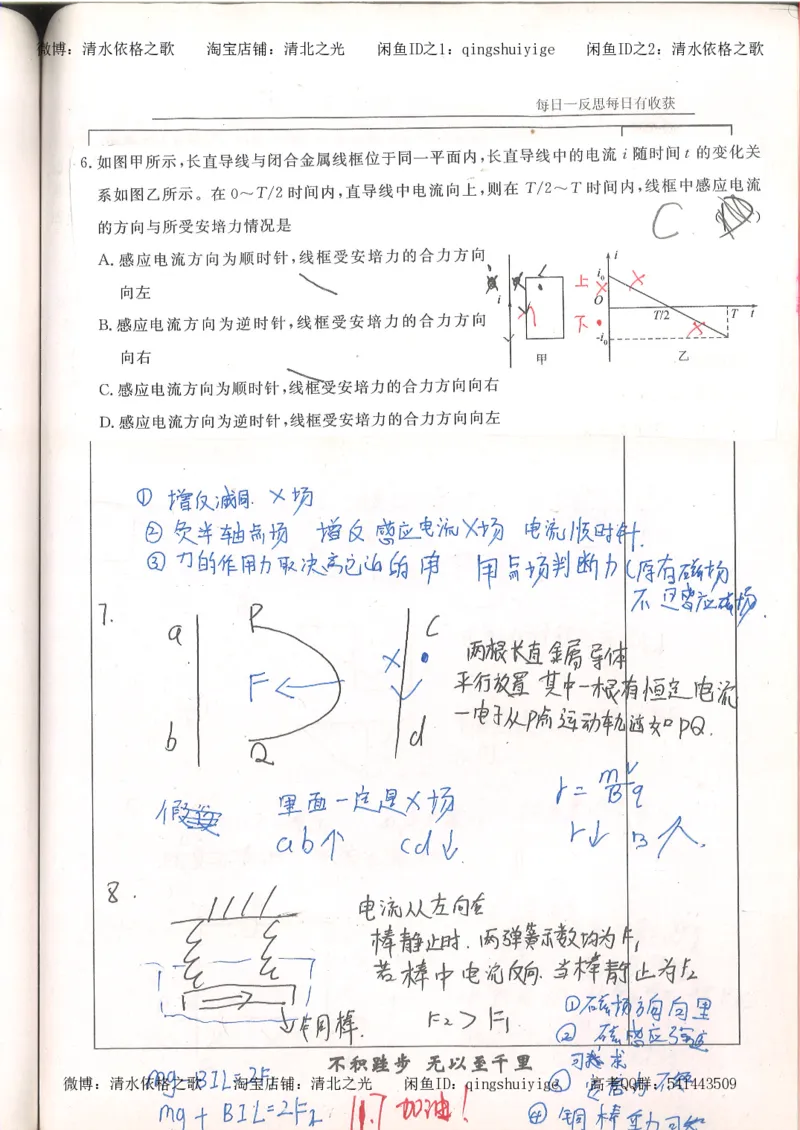 微博：清水依格之歌 淘宝店铺：清北之光 闲鱼ID之1：qingshuiyige 闲鱼ID之2：清水依格之歌
每日一反思每日有收获
6. 如图甲所示，长直导线与闭合金属线框位于同一平面内，长直导线中的电流 i 随时间 t 的变化关
系如图乙所示。在 0～T/2 时间内，直导线中电流向上，则在 T/2～T 时间内，线框中感应电流
的方向与所受安培力情况是 C ( )
A. 感应电流方向为顺时针，线框受安培力的合力方向
向左
B. 感应电流方向为逆时针，线框受安培力的合力方向
向右
C. 感应电流方向为顺时针，线框受安培力的合力方向向右
D. 感应电流方向为逆时针，线框受安培力的合力方向向左
i
甲
上 ×
下 •
i
i₀
O
T/2
T t
-i₀
乙
① 增反减同. ×场
② 负半轴点场 增反 感应电流×场 电流顺时针.
③ 力的作用力取决离它近的
用点场判断力(原有磁场
不是感应磁场.
7.
a
b
P
Q
F
c
d
两根长直金属导体
平行放置 其中一根有恒定电流
一电子从P点运动轨迹如PQ.
假
里面一定是×场
ab↑ cd↓
r=mv/Bq
r↓ B大.
8.
电流从左向右
棒静止时. 两弹簧示数均为F₁
若棒中电流反向. 当棒静止为F₂
F₂>F₁
①磁场方向向里
② 磁感应强度
可求
mg-BIL=2F₁
mg+BIL=2F₂
不积跬步 无以至千里
微博：清水依格之歌 淘宝店铺：清北之光 闲鱼ID：qingshuiyige 高考QQ群：541443509
11.7 加油！